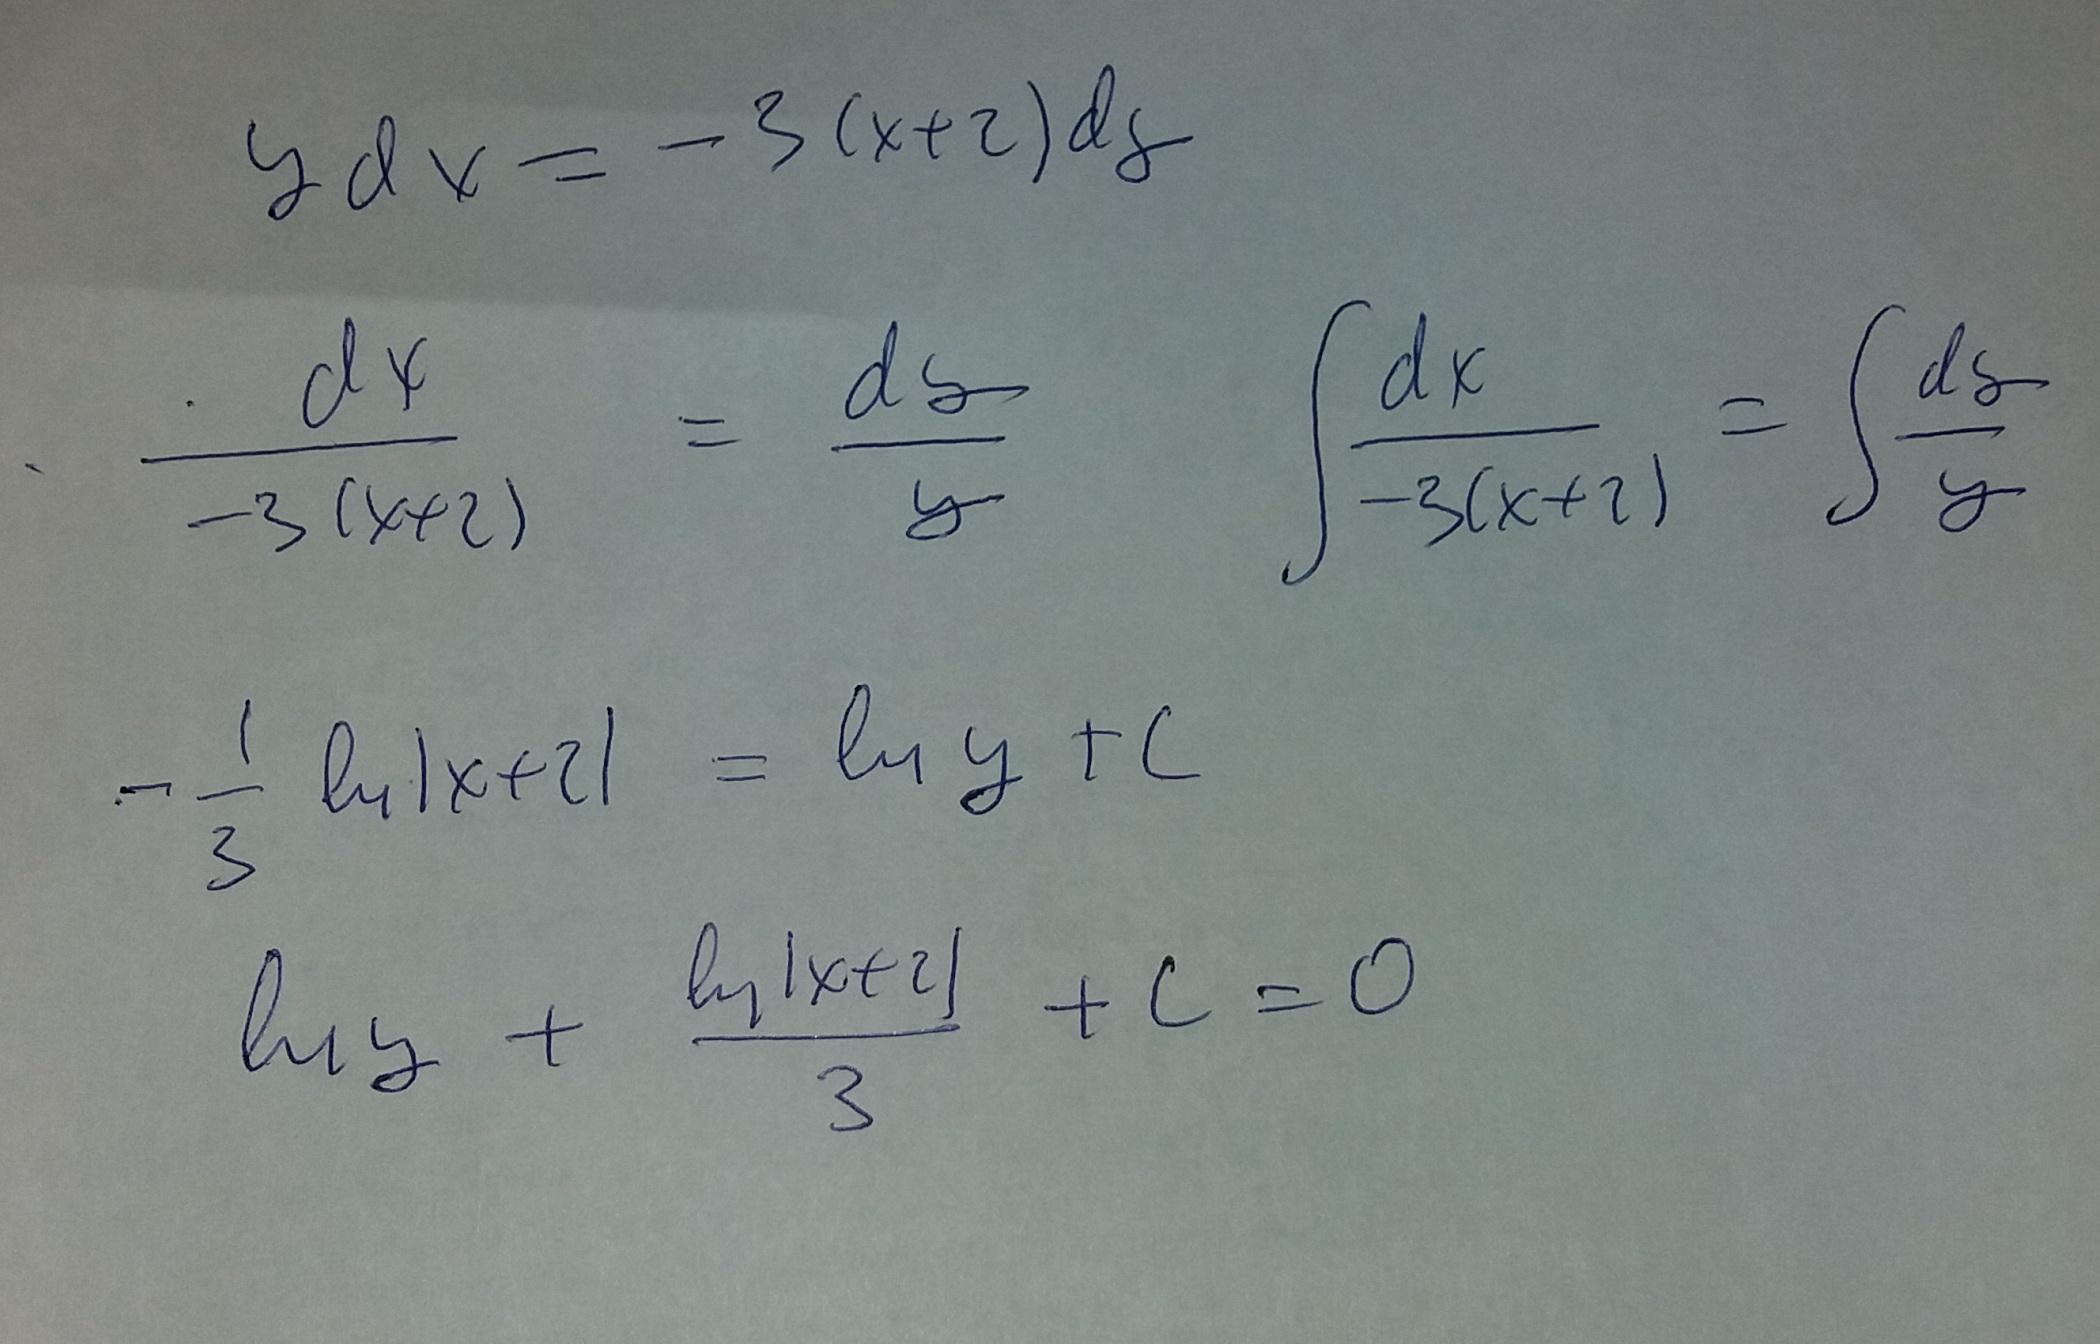 y dx = -3(x+2)dy
dx/(-3(x+2)) = dy/y ∫dx/(-3(x+2)) = ∫dy/y
-1/3 ln|x+2| = ln y + C
ln y + ln|x+2|/3 + C = 0